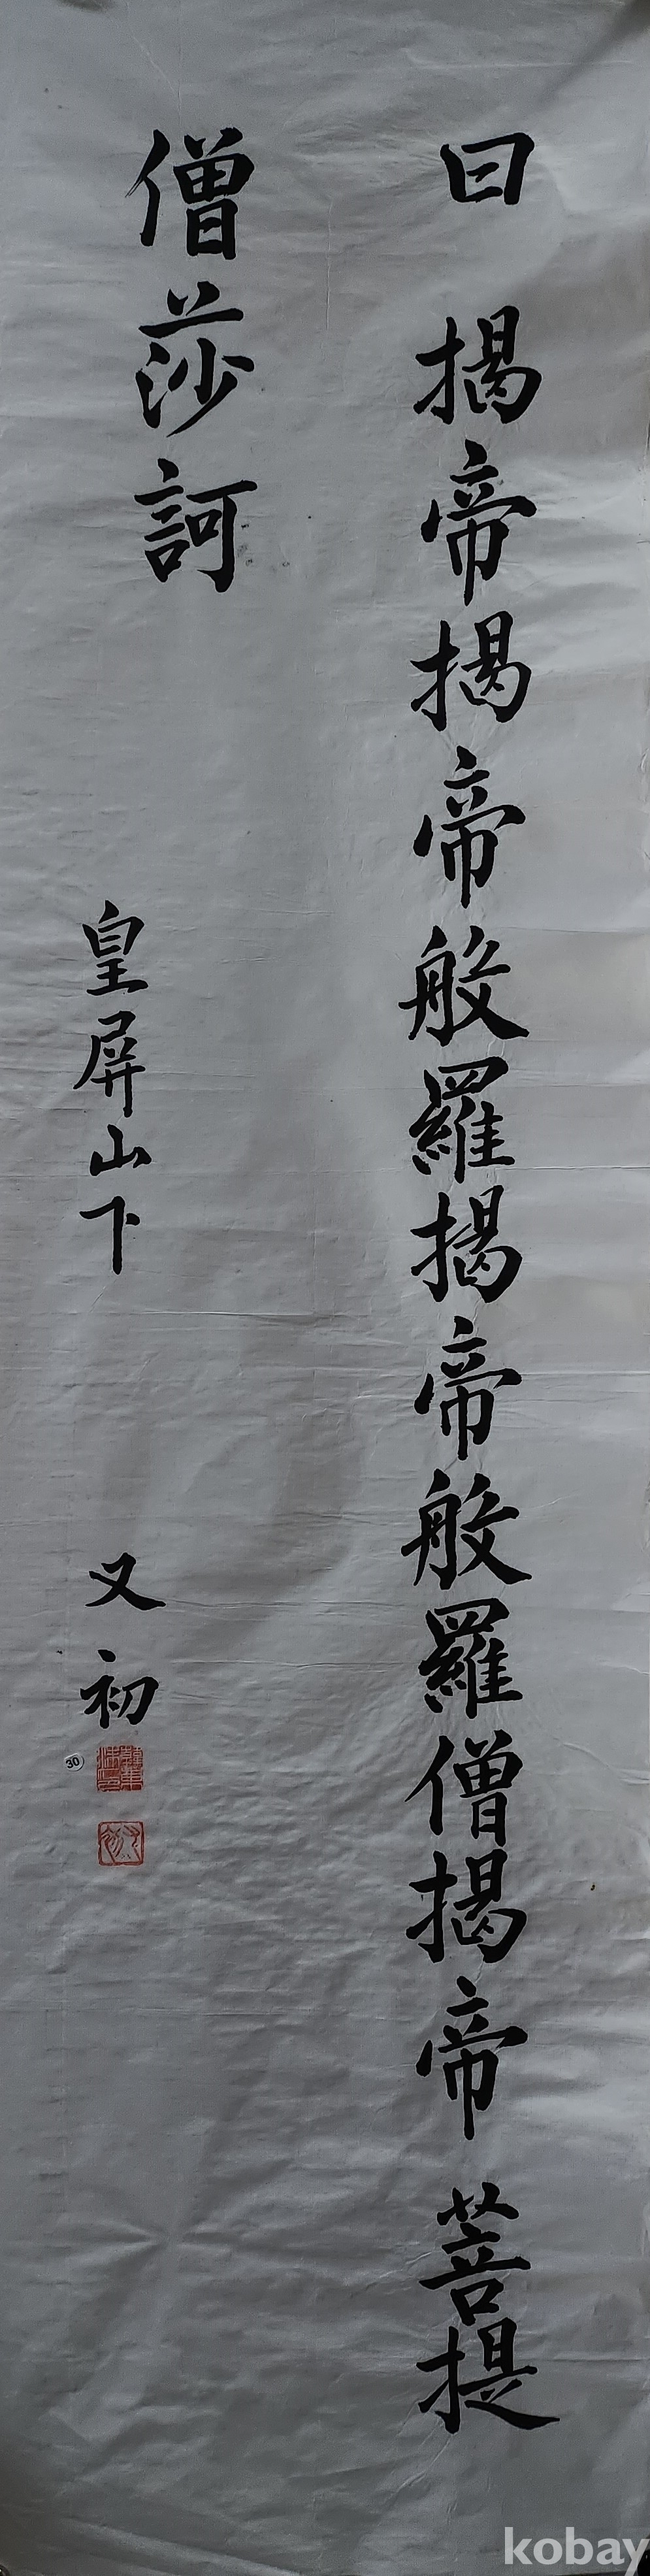 曰 揭帝揭帝般羅揭帝般羅僧揭帝 菩提
僧莎訶
皇屏山下 又初
30
kobay